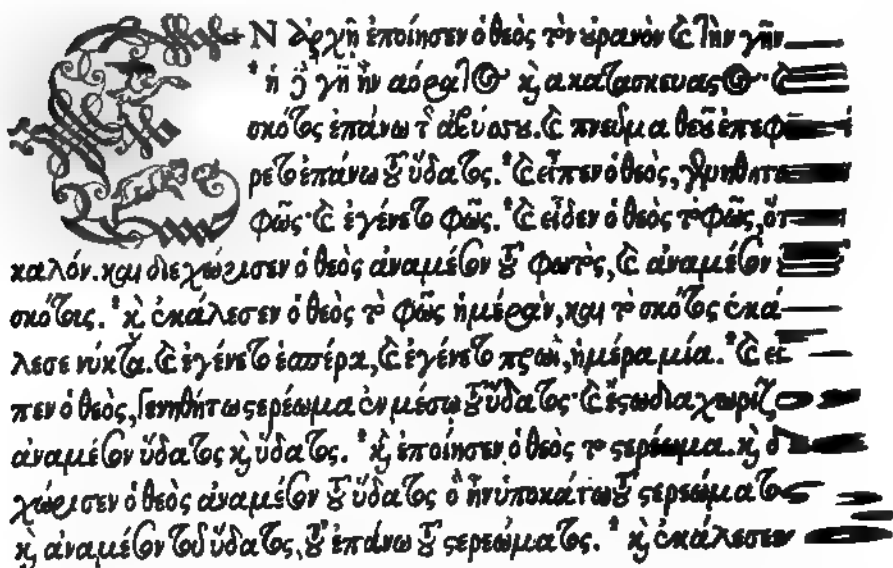 ΕΝ ἀρχῇ ἐποίησεν ὁ θεὸς τὸν οὐρανὸν καὶ τὴν γῆν
ἡ δὲ γῆ ἦν ἀόρατος καὶ ἀκατασκεύαστος· καὶ
σκότος ἐπάνω τῆς ἀβύσσου. καὶ πνεῦμα θεοῦ ἐπεφέ
ρετο ἐπάνω τοῦ ὕδατος. καὶ εἶπεν ὁ θεὸς, γενηθήτω
φῶς· καὶ ἐγένετο φῶς. καὶ εἶδεν ὁ θεὸς τὸ φῶς, ὅτι
καλόν. καὶ διεχώρισεν ὁ θεὸς ἀναμέσον τοῦ φωτὸς, καὶ ἀναμέσον
σκότους. καὶ ἐκάλεσεν ὁ θεὸς τὸ φῶς ἡμέραν, καὶ τὸ σκότος ἐκά
λεσε νύκτα. καὶ ἐγένετο ἑσπέρα, καὶ ἐγένετο πρωῒ, ἡμέρα μία. καὶ εἶ
πεν ὁ θεὸς, Γενηθήτω στερέωμα ἐν μέσω τοῦ ὕδατος· καὶ ἔστω διαχωρίζον
ἀναμέσον ὕδατος καὶ ὕδατος. καὶ ἐποίησεν ὁ θεὸς τὸ στερέωμα. καὶ
χώρισεν ὁ θεὸς ἀναμέσον τοῦ ὕδατος ὃ ἦν ὑποκάτω τοῦ στερεώματος
καὶ ἀναμέσον τοῦ ὕδατος, τοῦ ἐπάνω τοῦ στερεώματος. καὶ ἐκάλεσεν